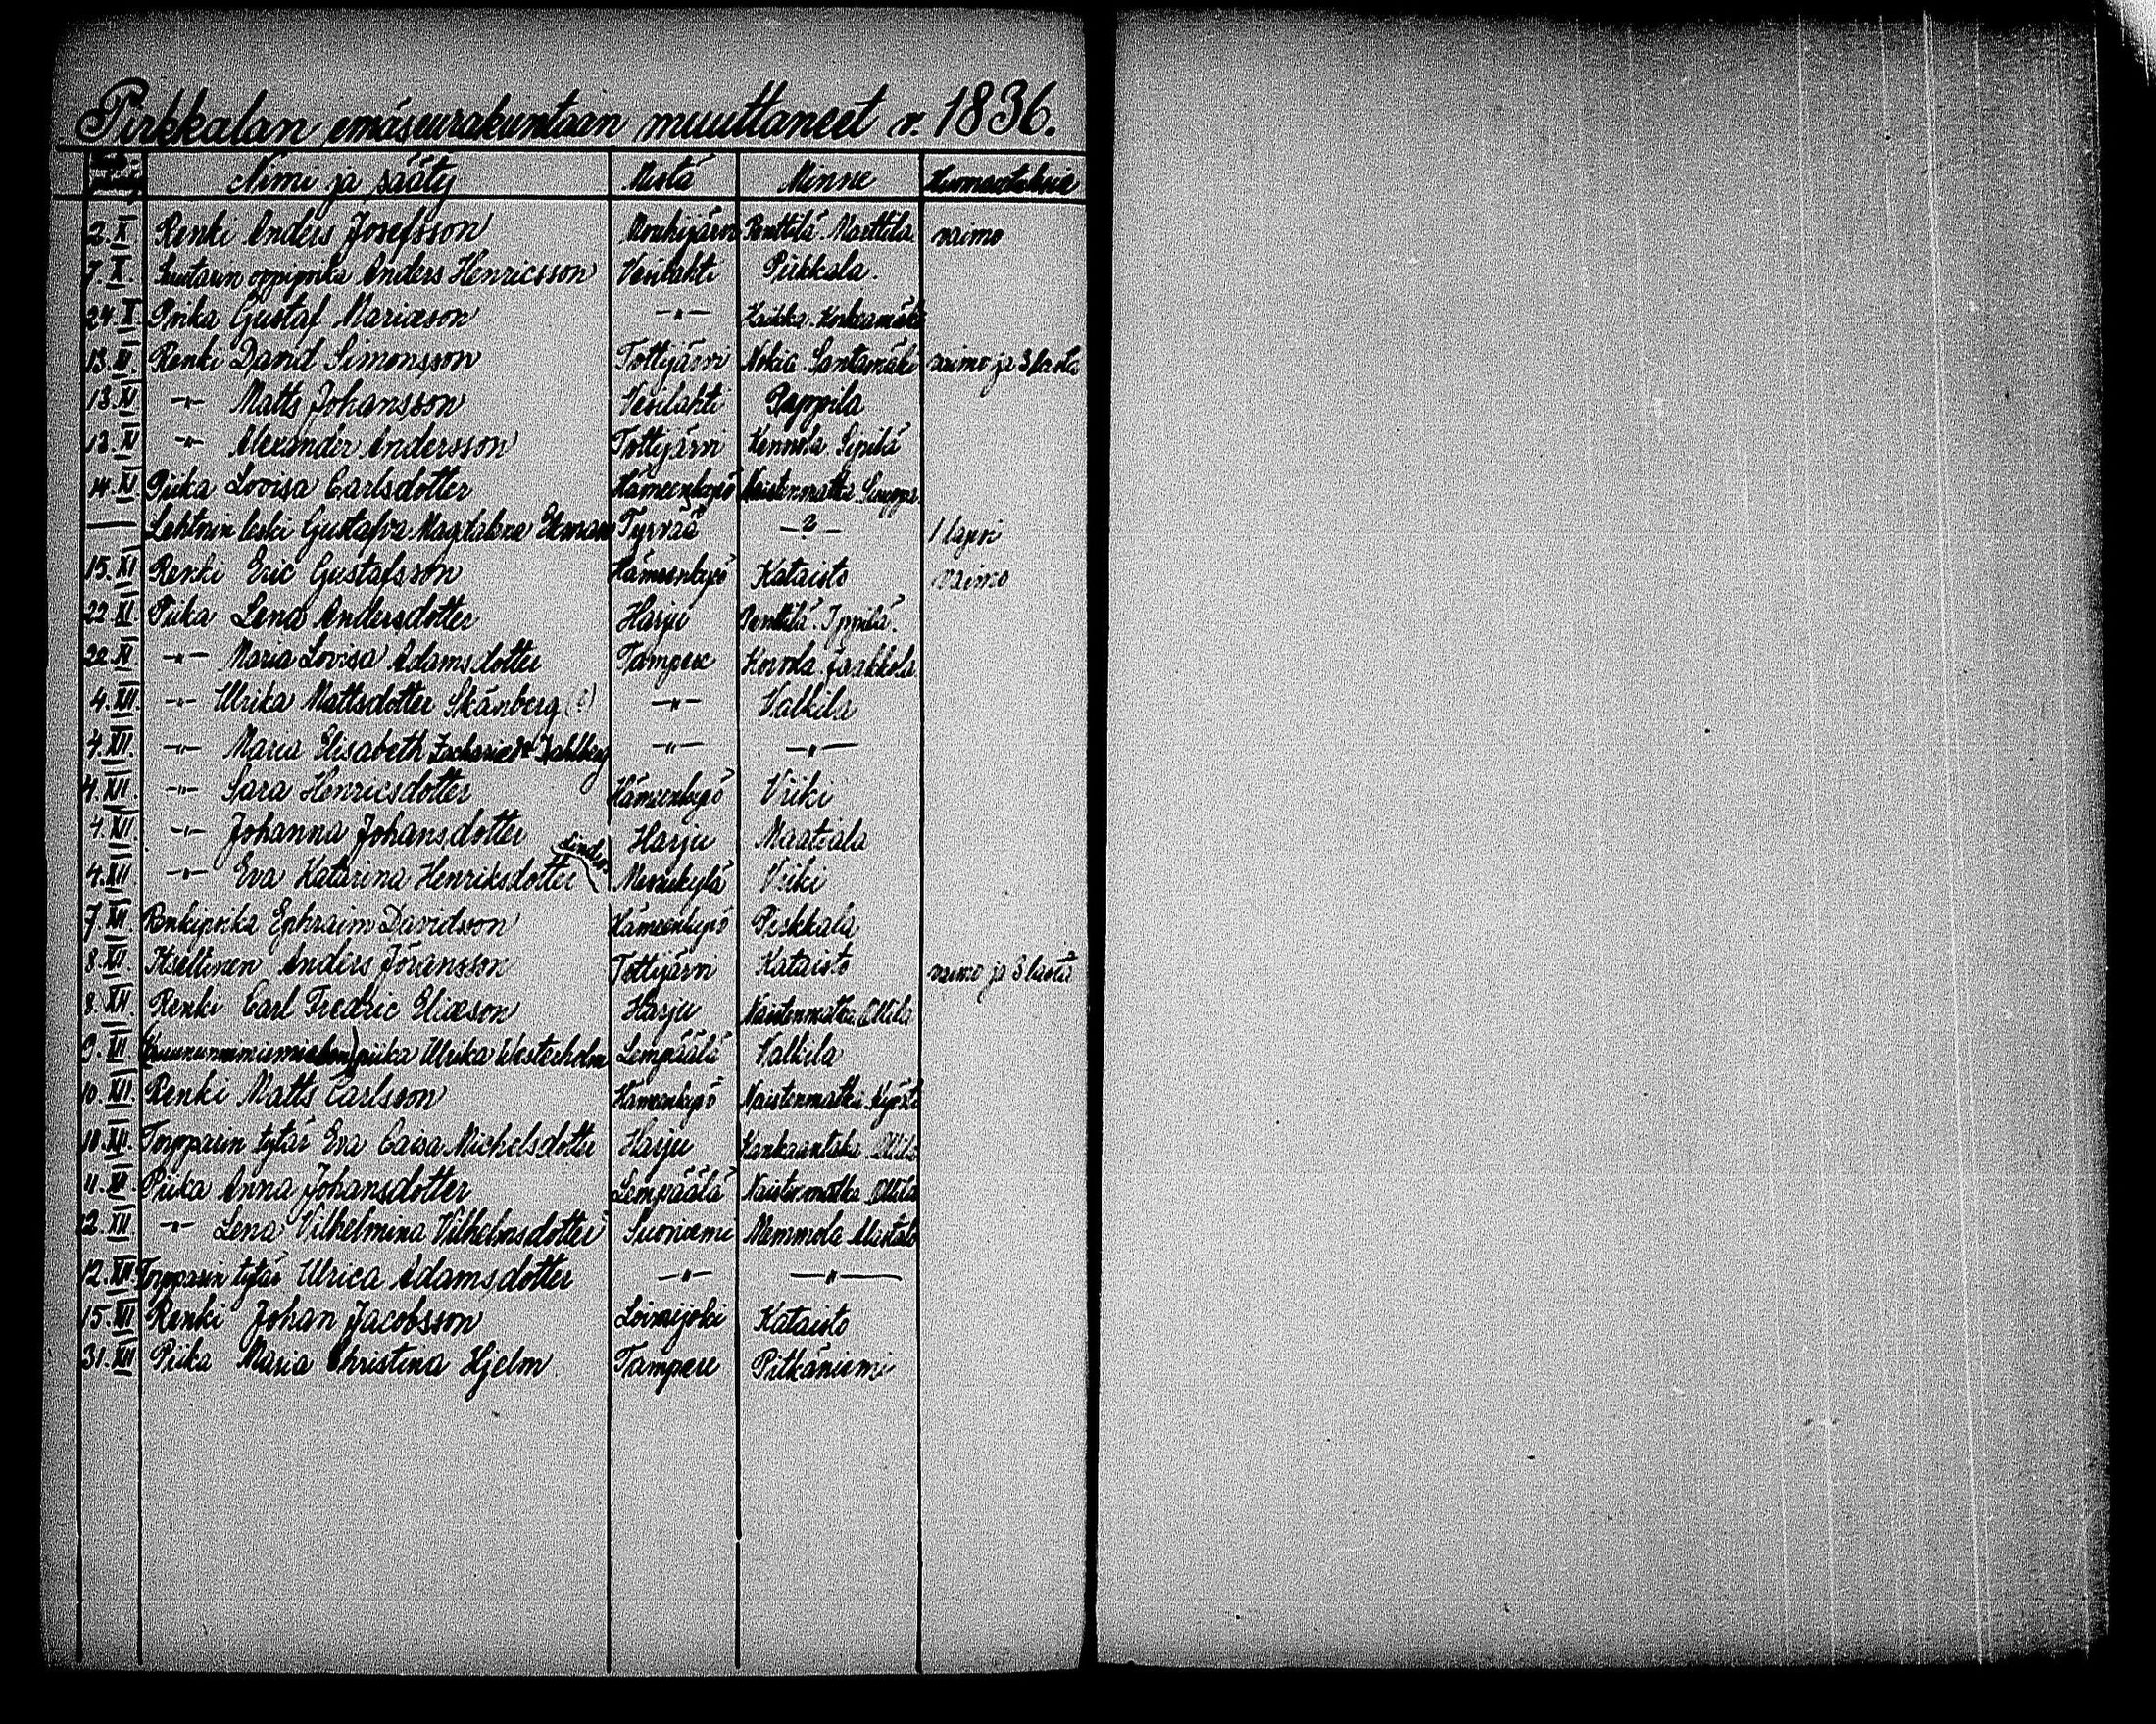 Pirkkalan emäseurakuntaan muuttaneet v. 1836.
Nimi ja sääty Mistä Minne
2.X Renki Anders Josefsson Mouhijärvi Penttilä. Marttila vaimo
7.X. Suutarin oppipoika Anders Henricsson Vesilahti Pirkkala.
24.X Poika Gustaf Mariæson -"- Haikka.
13.XI. Renki David Simonsson Tottijärvi Nokia. Santamäki vaimo ja 3 lasta
13.XI -"- Matts Johansson Vesilahti Pappila
13.XI -"- Alexander Andersson Tottijärvi Sipilä
14.XI. Piika Lovisa Carlsdotter Hämeenkyrö Naistenmatka.
— Lehtorin leski Gustafva Magdalena Ekman Tyrvää -?- 1 lapsi
15.XI Renki Eric Gustafsson Hämeenkyrö Kataisto vaimo
22.XI. Piika Lena Andersdotter Harju Penttilä.
22.XI -"- Maria Lovisa Adamsdotter Tampere Korvola. Jaakkola.
4.XII -"- Ulrika Mattsdotter Skånberg (?) -"- Valkila
4.XII. -"- Maria Elisabeth Zachariædr Dahlberg -"- -"-
4.XII. -"- Sara Henricsdotter Hämeenkyrö Viiki
4.XII. -"- Johanna Johansdotter Harju Maatiala
4.XII. -"- Eva Katarina Henriksdotter Messukylä Viiki
7.XII. Renkipoika Ephraim Davidsson Hämeenkyrö Pirkkala
8.XII. Itsellinen Anders Jöransson Tottijärvi Kataisto vaimo ja 3 lasta
8.XII. Renki Carl Fredric Eliæson Harju Naistenmatka. Ollila
9.XII (Kruununnimismiehen) piika Ulrika Westerholm Lempäälä Valkila
10.XII. Renki Matts Carlsson Hämeenkyrö Naistenmatka.
10.XII. Torpparin tytär Eva Caisa Michelsdotter Harju Kankaantaka. Ollila
11.XII. Piika Anna Johansdotter Lempäälä Naistenmatka. Ollila
12.XII -"- Lena Vilhelmina Vilhelmsdotter Suoniemi Memmola Alistalo
12.XII Torpparin tytär Ulrica Adamsdotter -"- -"-
15.XII Renki Johan Jacobsson Loimijoki Kataisto
31.XII Piika Maria Christina Hjelm. Tampere Pitkäniemi